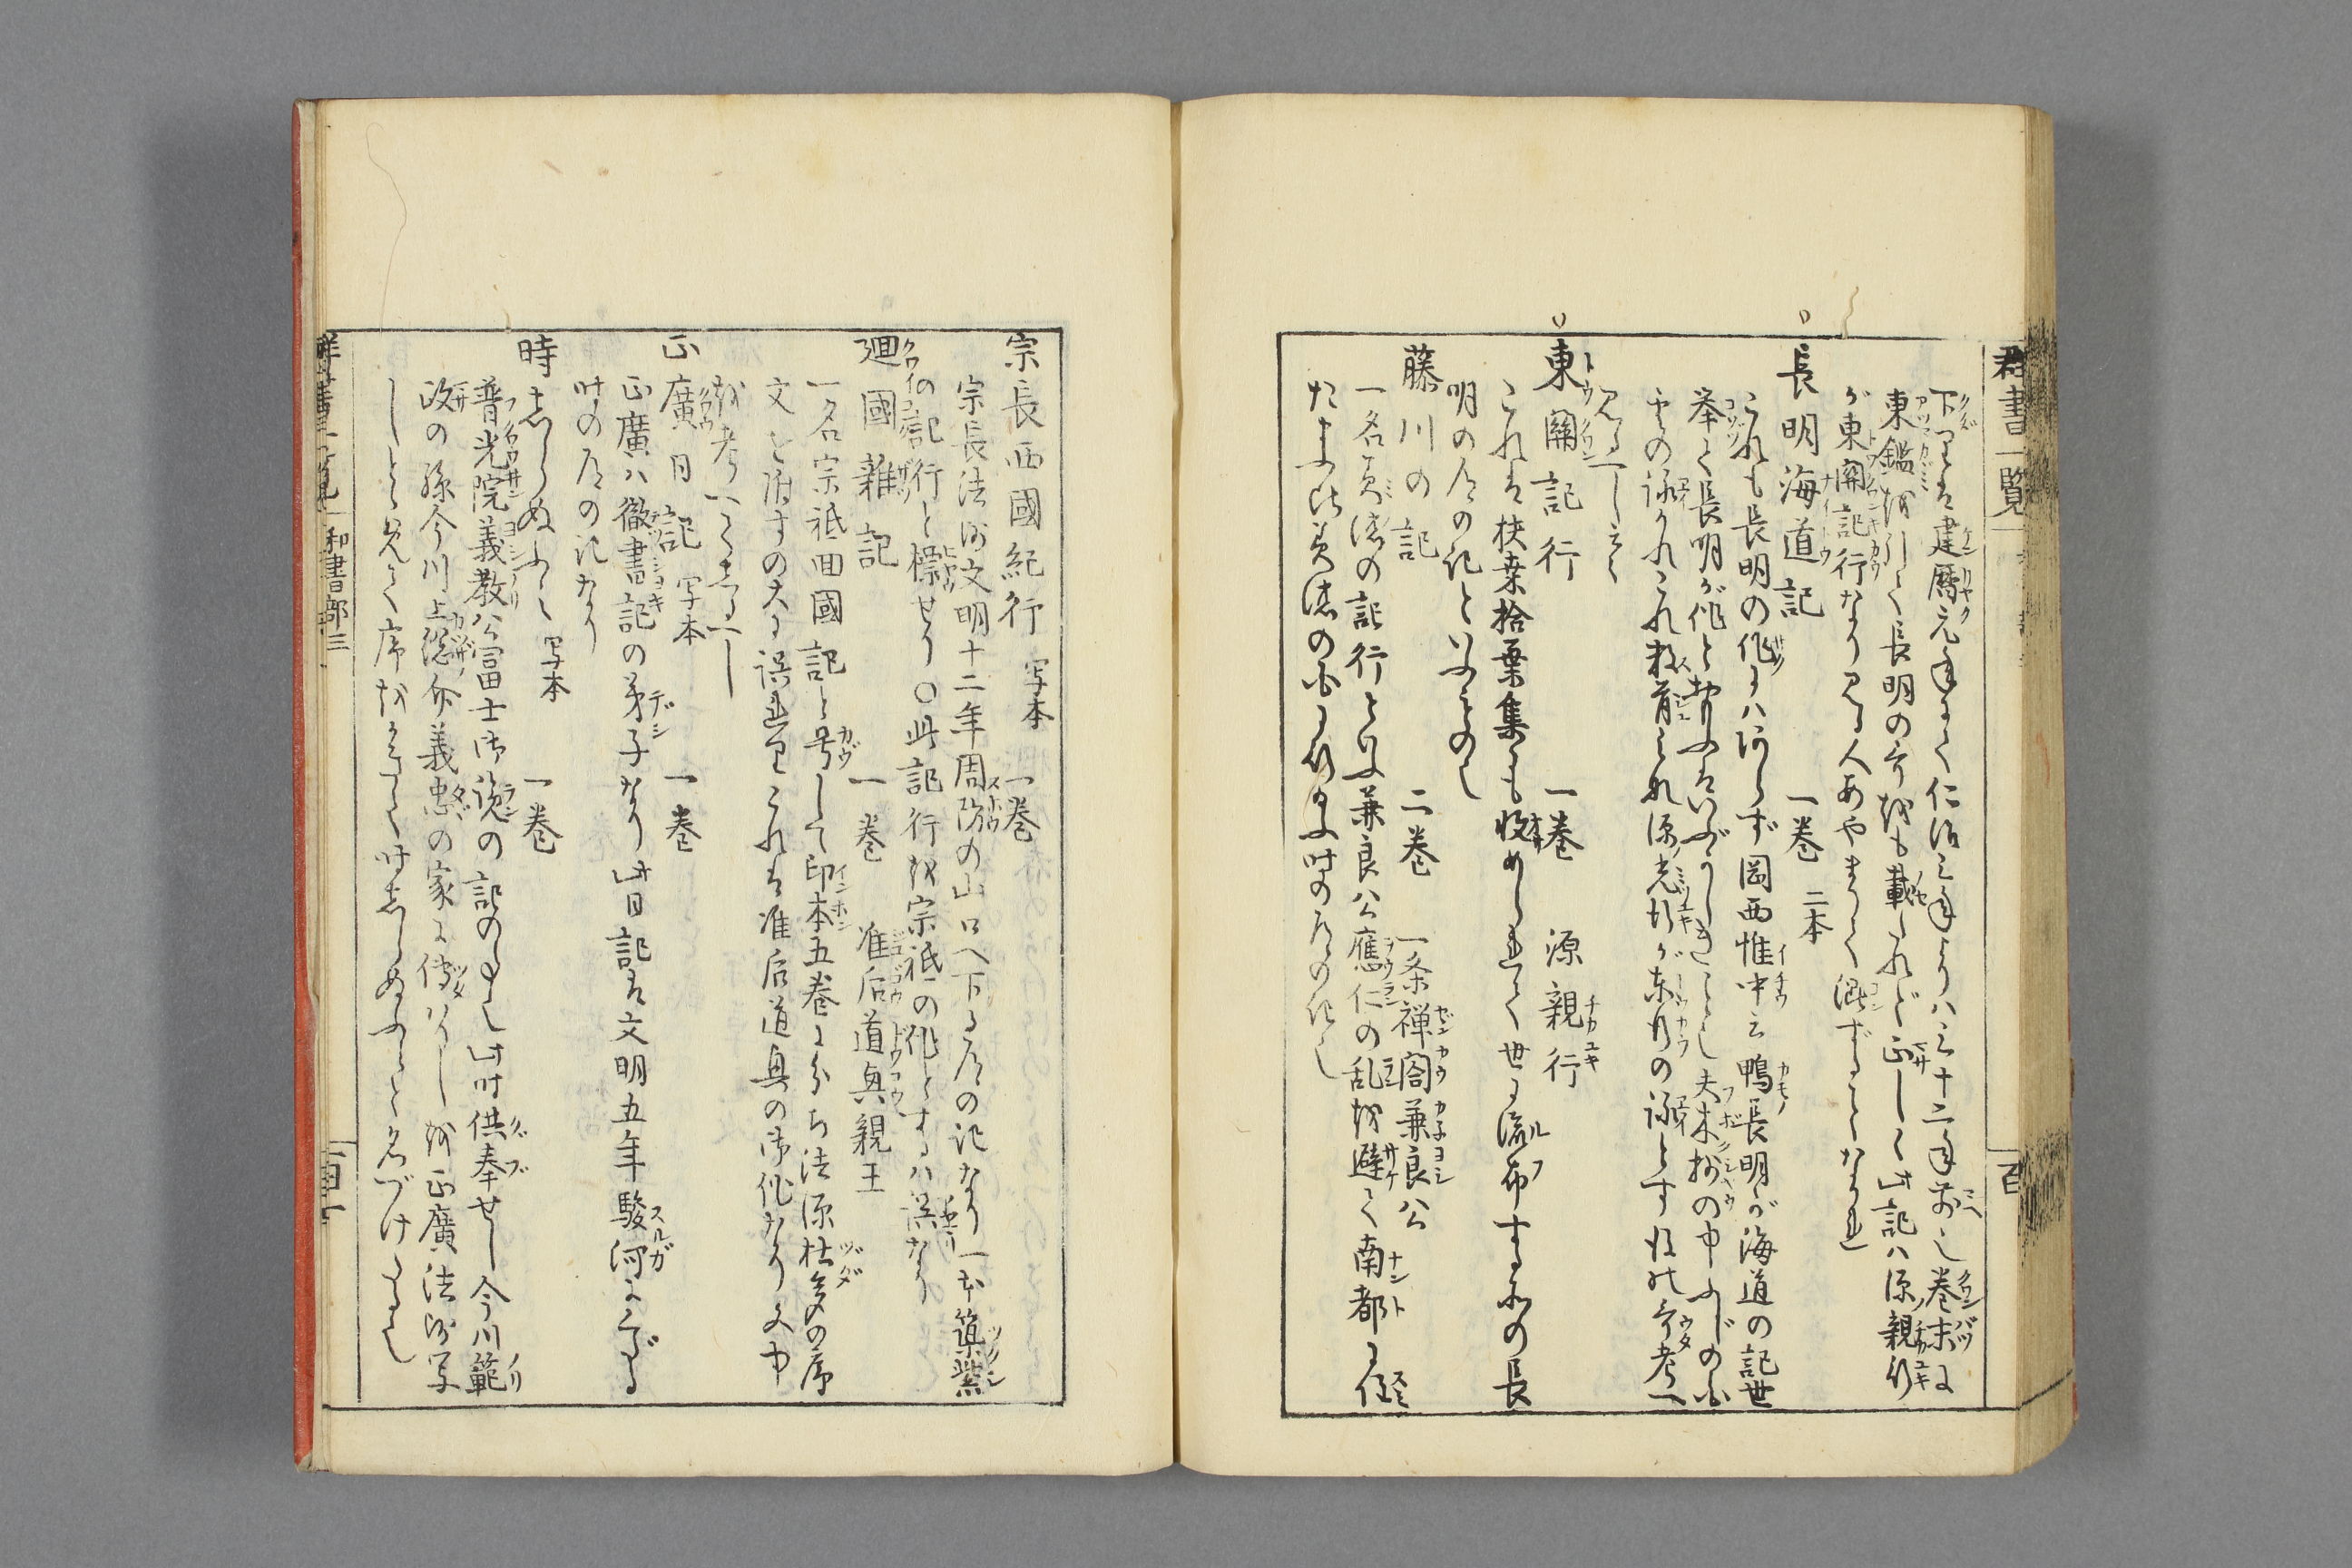 群書一覧
百
下向は建暦元年にて仁治三年よりハ三十二年前也巻末に
東鑑を引て長明の哥をも載たれど正しく此記ハ源親行
が東関記行なり見る人あやまりて混ずることなかれ
長明海道記 一巻 二本
これも長明の作にハあらず岡西惟中云鴨長明が海道の記世
挙て長明が作と
夫木抄の中ふじの哥
の詠
これ源光行が東行の詠とす
哥考へ
見るべしと云々
東關記行 一巻 源親行
これは扶桑拾葉集にも収めしられて世に流布する所の長
明の道の記といふもの也
藤川の記 二巻 一条禅閤兼良公
一名美濃の記行といふ兼良公應仁の乱を避て南都に住
たまふ比美濃の国に行給ふ時の道の記也
宗長西國紀行 写本 一巻
宗長法師文明十二年周防の山口へ下る道の記なり一本筑紫
の記行と標せり〇此記行を宗祇の作とするハ誤なり
廻國雜記 一巻 准后道興親王
一名宗祇回國記と号して印本五巻にわかち法師杜多の序
文を附すの大に誤れりこれは准后道興の御作なり文中
を考へてしるべし
正廣日記 写本 一巻
正廣ハ徹書記の弟子なり此日記は文明五年駿河にくだる
時の道の記なり
時しらぬふみ 写本 一巻
普光院義教公富士御覧の記のもの也此時供奉せし今川範
政の孫今川上総介義忠の家に傳はりしを正廣法師写
しとると見えて序をかきて時しらぬふみと名づけたる也
群書一覧
和書部三
百一